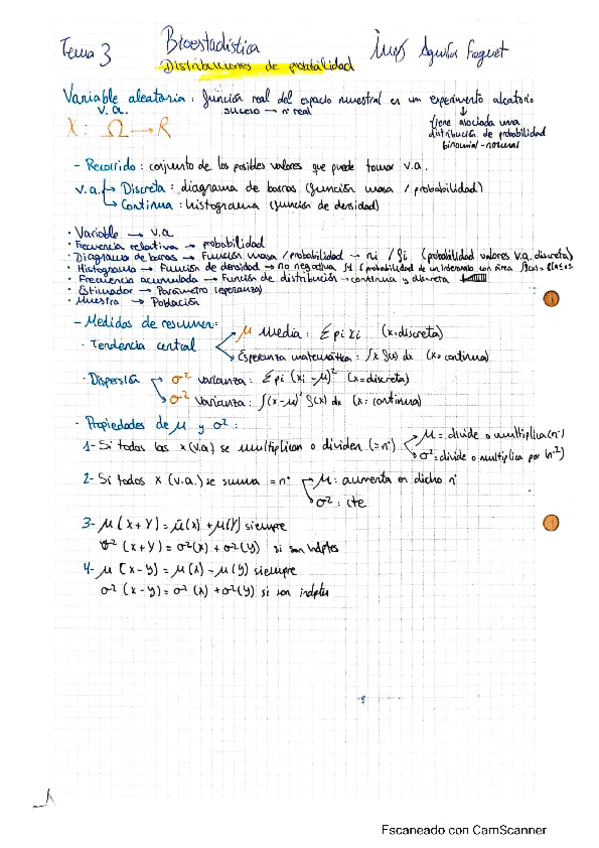 Tema 3 Bioestadística Inés Aguilar
Distribuciones de probabilidad
Variable aleatoria: función real del espacio muestral en un experimento aleatorio
v.a. suceso → nº real
X: Ω → R
tiene asociada una
distribución de probabilidad
binomial-normal
- Recorrido: conjunto de los posibles valores que puede tomar v.a.
v.a. → Discreta: diagrama de barras (función masa / probabilidad)
→ Continua: histograma (función de densidad)
· Variable → v.a
· Frecuencia relativa → probabilidad
· Diagrama de barras → Función masa/probabilidad → ni / fi (probabilidad valores v.a. discreta)
· Histograma → Función de densidad → no negativa (probabilidad de un intervalo con área
· Frecuencia acumulada → Función de distribución → continua y discreta
· Estimador → Parámetro (esperanza)
· Muestra → Población
- Medidas de resumen:
· Tendencia central
μ media: Σ pi xi (x=discreta)
Esperanza matemática: ∫x f(x) dx (x= continua)
· Dispersión → σ² varianza: Σ pi (xi - μ)² (x=discreta)
→ σ² Varianza: ∫(x-μ)² f(x) dx (x: continua)
- Propiedades de μ y σ²:
1- Si todos las x (v.a) se multiplican o dividen (=nº) μ= divide o multiplica (nº)
σ²= divide o multiplica por (nº²)
2- Si todos x (v.a.) se suma =nº μ: aumenta en dicho nº
σ²: cte
3- μ (x+Y) = μ(x) + μ(Y) siempre
σ² (x+Y) = σ²(x) + σ²(Y) si son indptes
4- μ (x-y) = μ(x) - μ(y) siempre
σ² (x-y) = σ²(x) + σ²(y) si son indptes
Escaneado con CamScanner